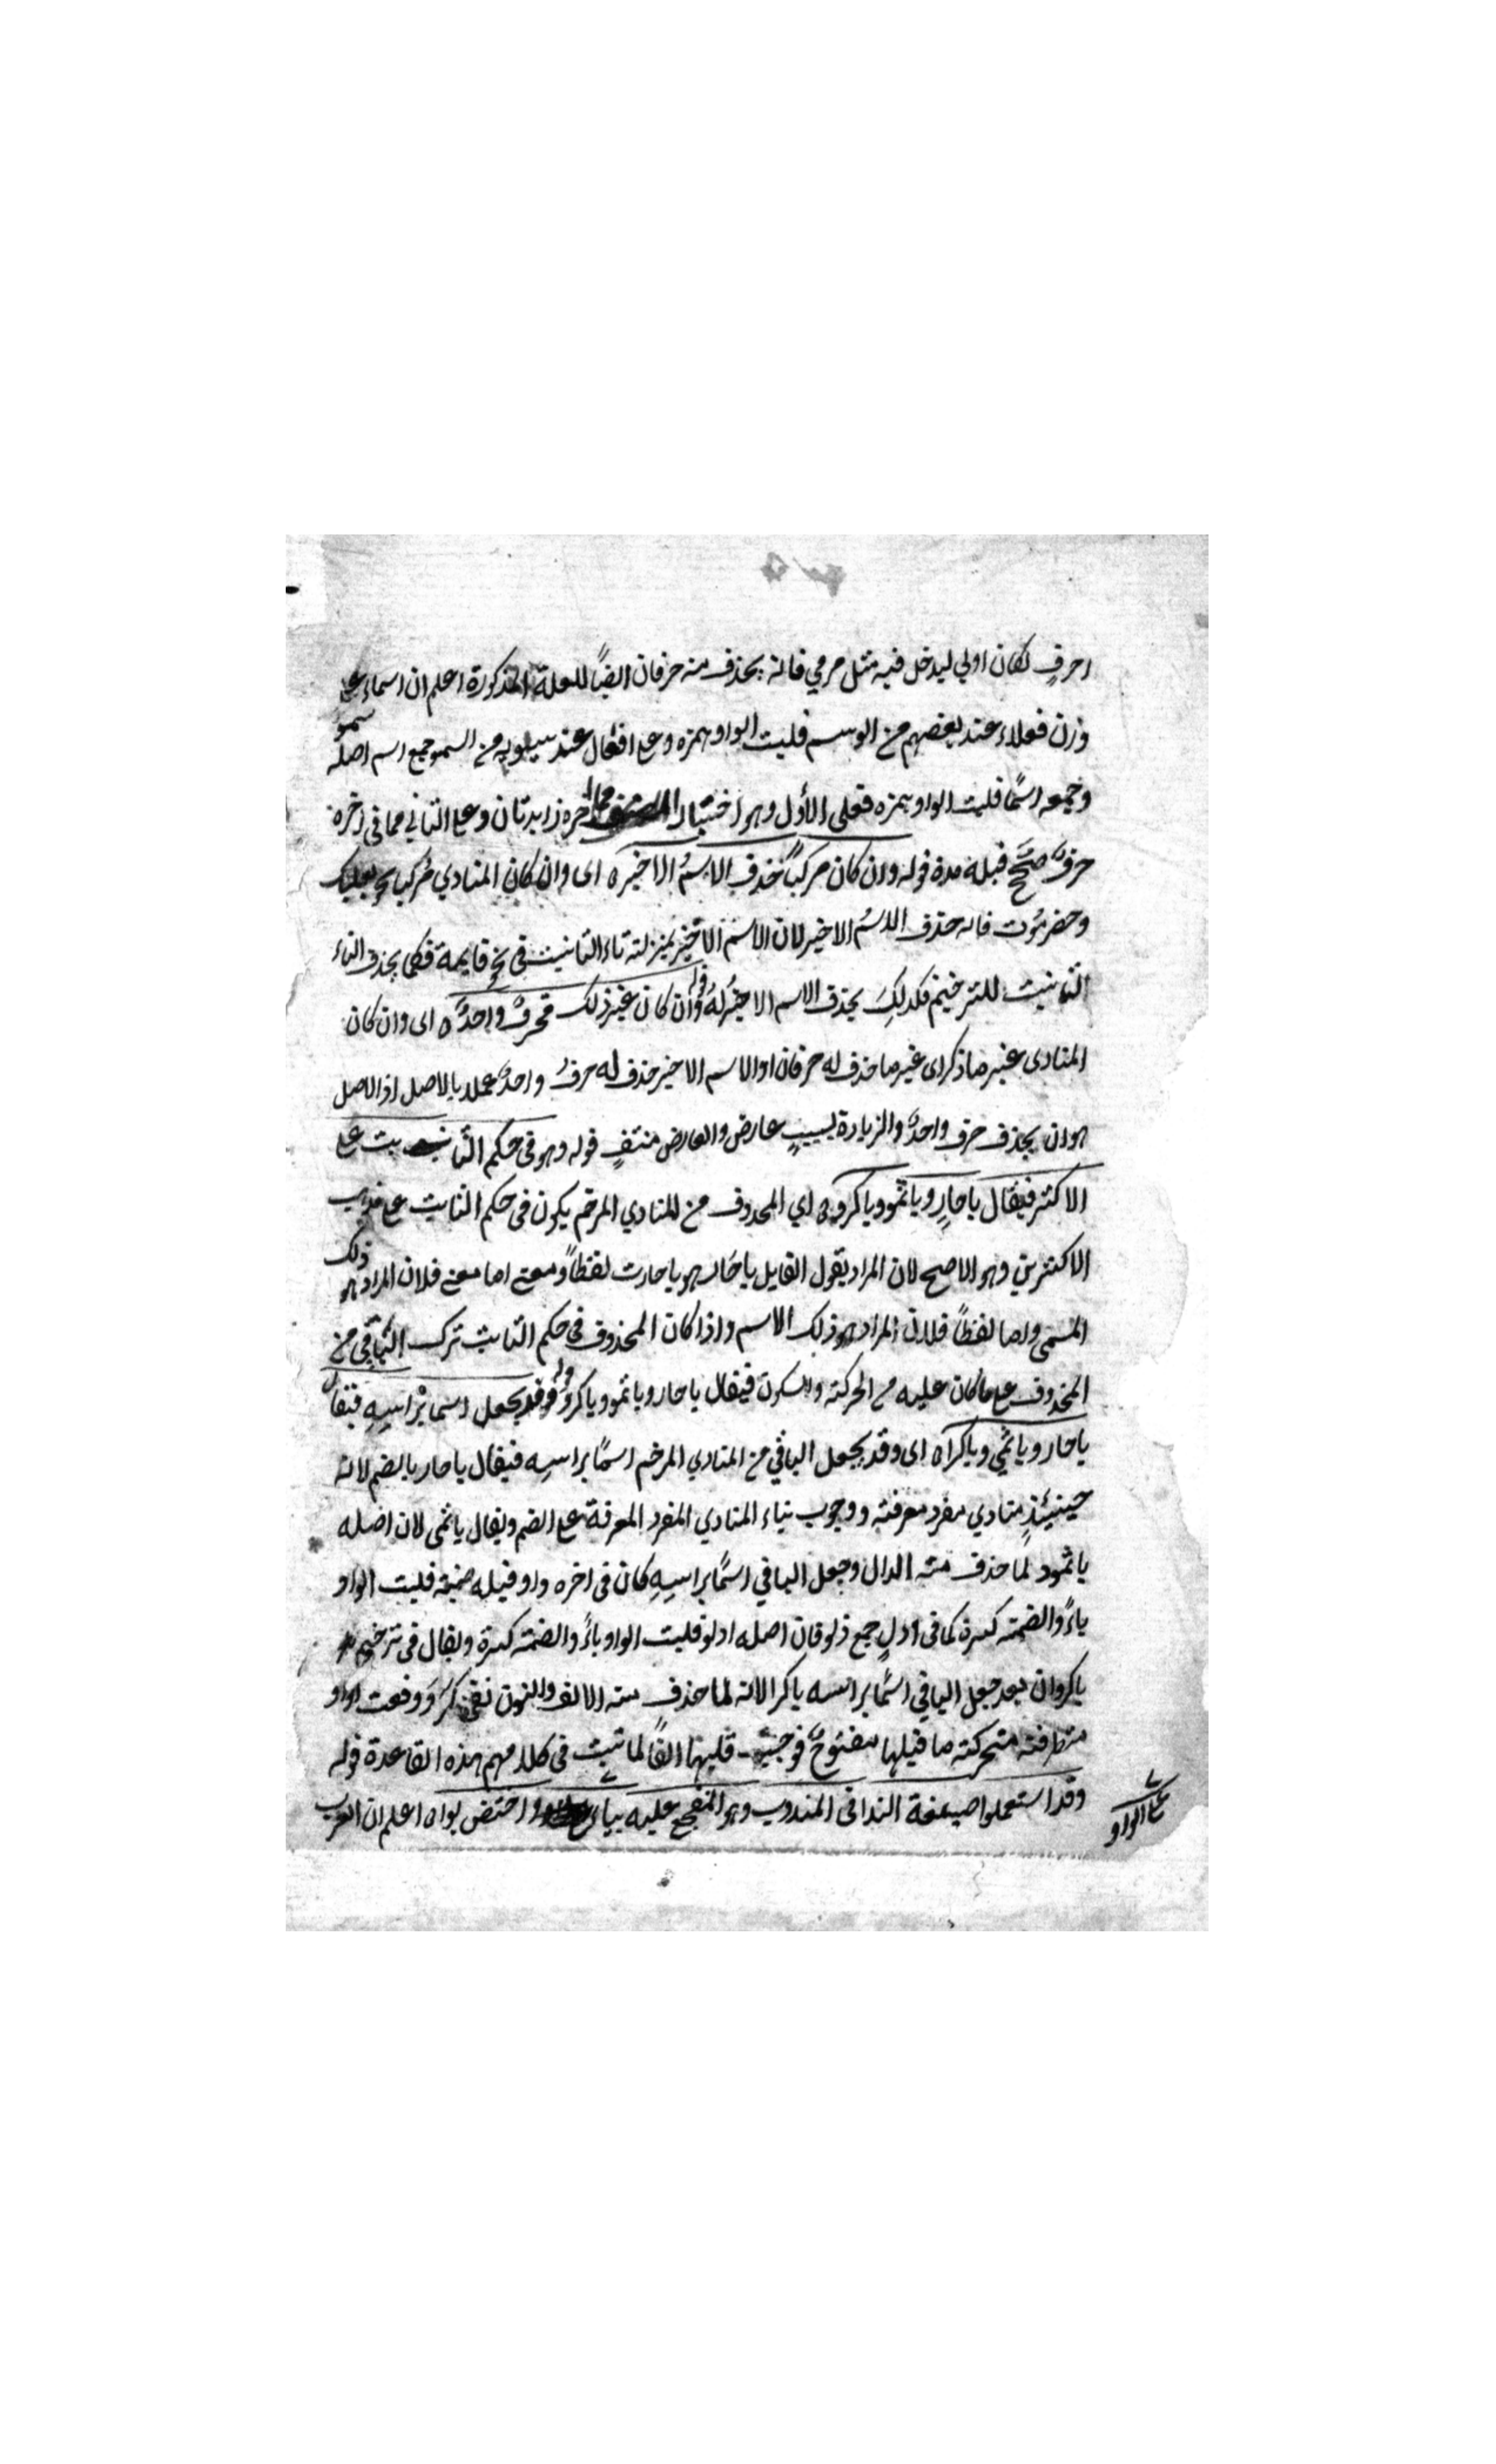 احرفٍ لكان اولي ليدخل فيه مثل مرمي فانه يحذف منه حرفان ايضاً للعلة المذكورة اعلم ان اسماء على
وزن فعلاء عند بعضهم من الوسم قلبت الواو همزه وعلى افعال عند سيبويه من السمو جمع اسم اصله سمو
وجمعه اسمًا قلبت الواو همزه فعلى الأول وهو اختيار المصنف مما اخره زايدتان وعلى الثاني مما في اخره
حرف صحيح قبله مدة قوله وان كان مركباً حذف الاسمُ الاخيره اى وان كان المنادي مركبا نحو بعلبك
وحضرموت فانه حذف الاسمُ الاخير لان الاسم الاخير بمنزلته تاء التانيث في نحو قايمة فكما يحذف التاء
التانيث للترخيم فكذلكَ يحذف الاسم الاخير قوله وان كان غير ذلك فحرفٌ واحدٌه اى وان كان
المنادى غير ما ذكر اى غير ما حذف له حرفان او الاسم الاخير حذف له حرفُ واحدٌ عملا بالاصل اذ الاصل
هو ان يحذف حرف واحدٌ والزيادة لسببٍ عارض والعارض منتفٍ قوله وهو في حكم الثابت على
الاكثر فيقال ياحارِ وياثمو وياكروه اي المحذوف من المنادي المرخم يكون في حكم الثابت على مذهب
الاكثرين وهو الاصح لان المراد بقول القايل ياحَار هو ياحارث لفظاً ومعنى اما معنى فلان المراد هو ذلك
المسمى واما لفظاً فلان المراد هو ذلك الاسم واذا كان المحذوف في حكم الثابت ترك الباقي من
المحذوف على ما كان عليه من الحركة والسكون فيقال ياحار وياثمو وياكروَ قوله وقد يجعل اسما براسِهِ فيقال
ياحار وياثمي وياكراه اى وقد يجعل الباقي من المنادي المرخم اسمًا براسِه فيقال ياحار بالضم لانه
حينئذٍ منادي مفرد معرفته ووجوب بناء المنادي المفرد المعرفة على الضم ويقال ياثمى لان اصله
ياثمود لمّا حذف منه الدال وجعل الباقي اسمًا براسِهِ كان في اخره واو قبله ضمة قلبت الواو
ياءً والضمته كسرة كما في ادلٍ جمع دلو فان اصله ادلو قلبت الواو ياءً والضمته كسرة ويقال في ترخيم
ياكروان بعد جعل الباقي اسمًا براسه ياكرا لانه لما حذف منه الالف والنون بقي كروَ وقعت الواو
متطرفته متحركته ما قبلها مفتوحٌ فوجب قلبها الفاً لما ثبت في كلامهم هذه القاعدة قوله
وقد استعملوا صيغة الندا في المندوب وهو المتفجع عليه بيا او واختص بواه اعلم ان العرب